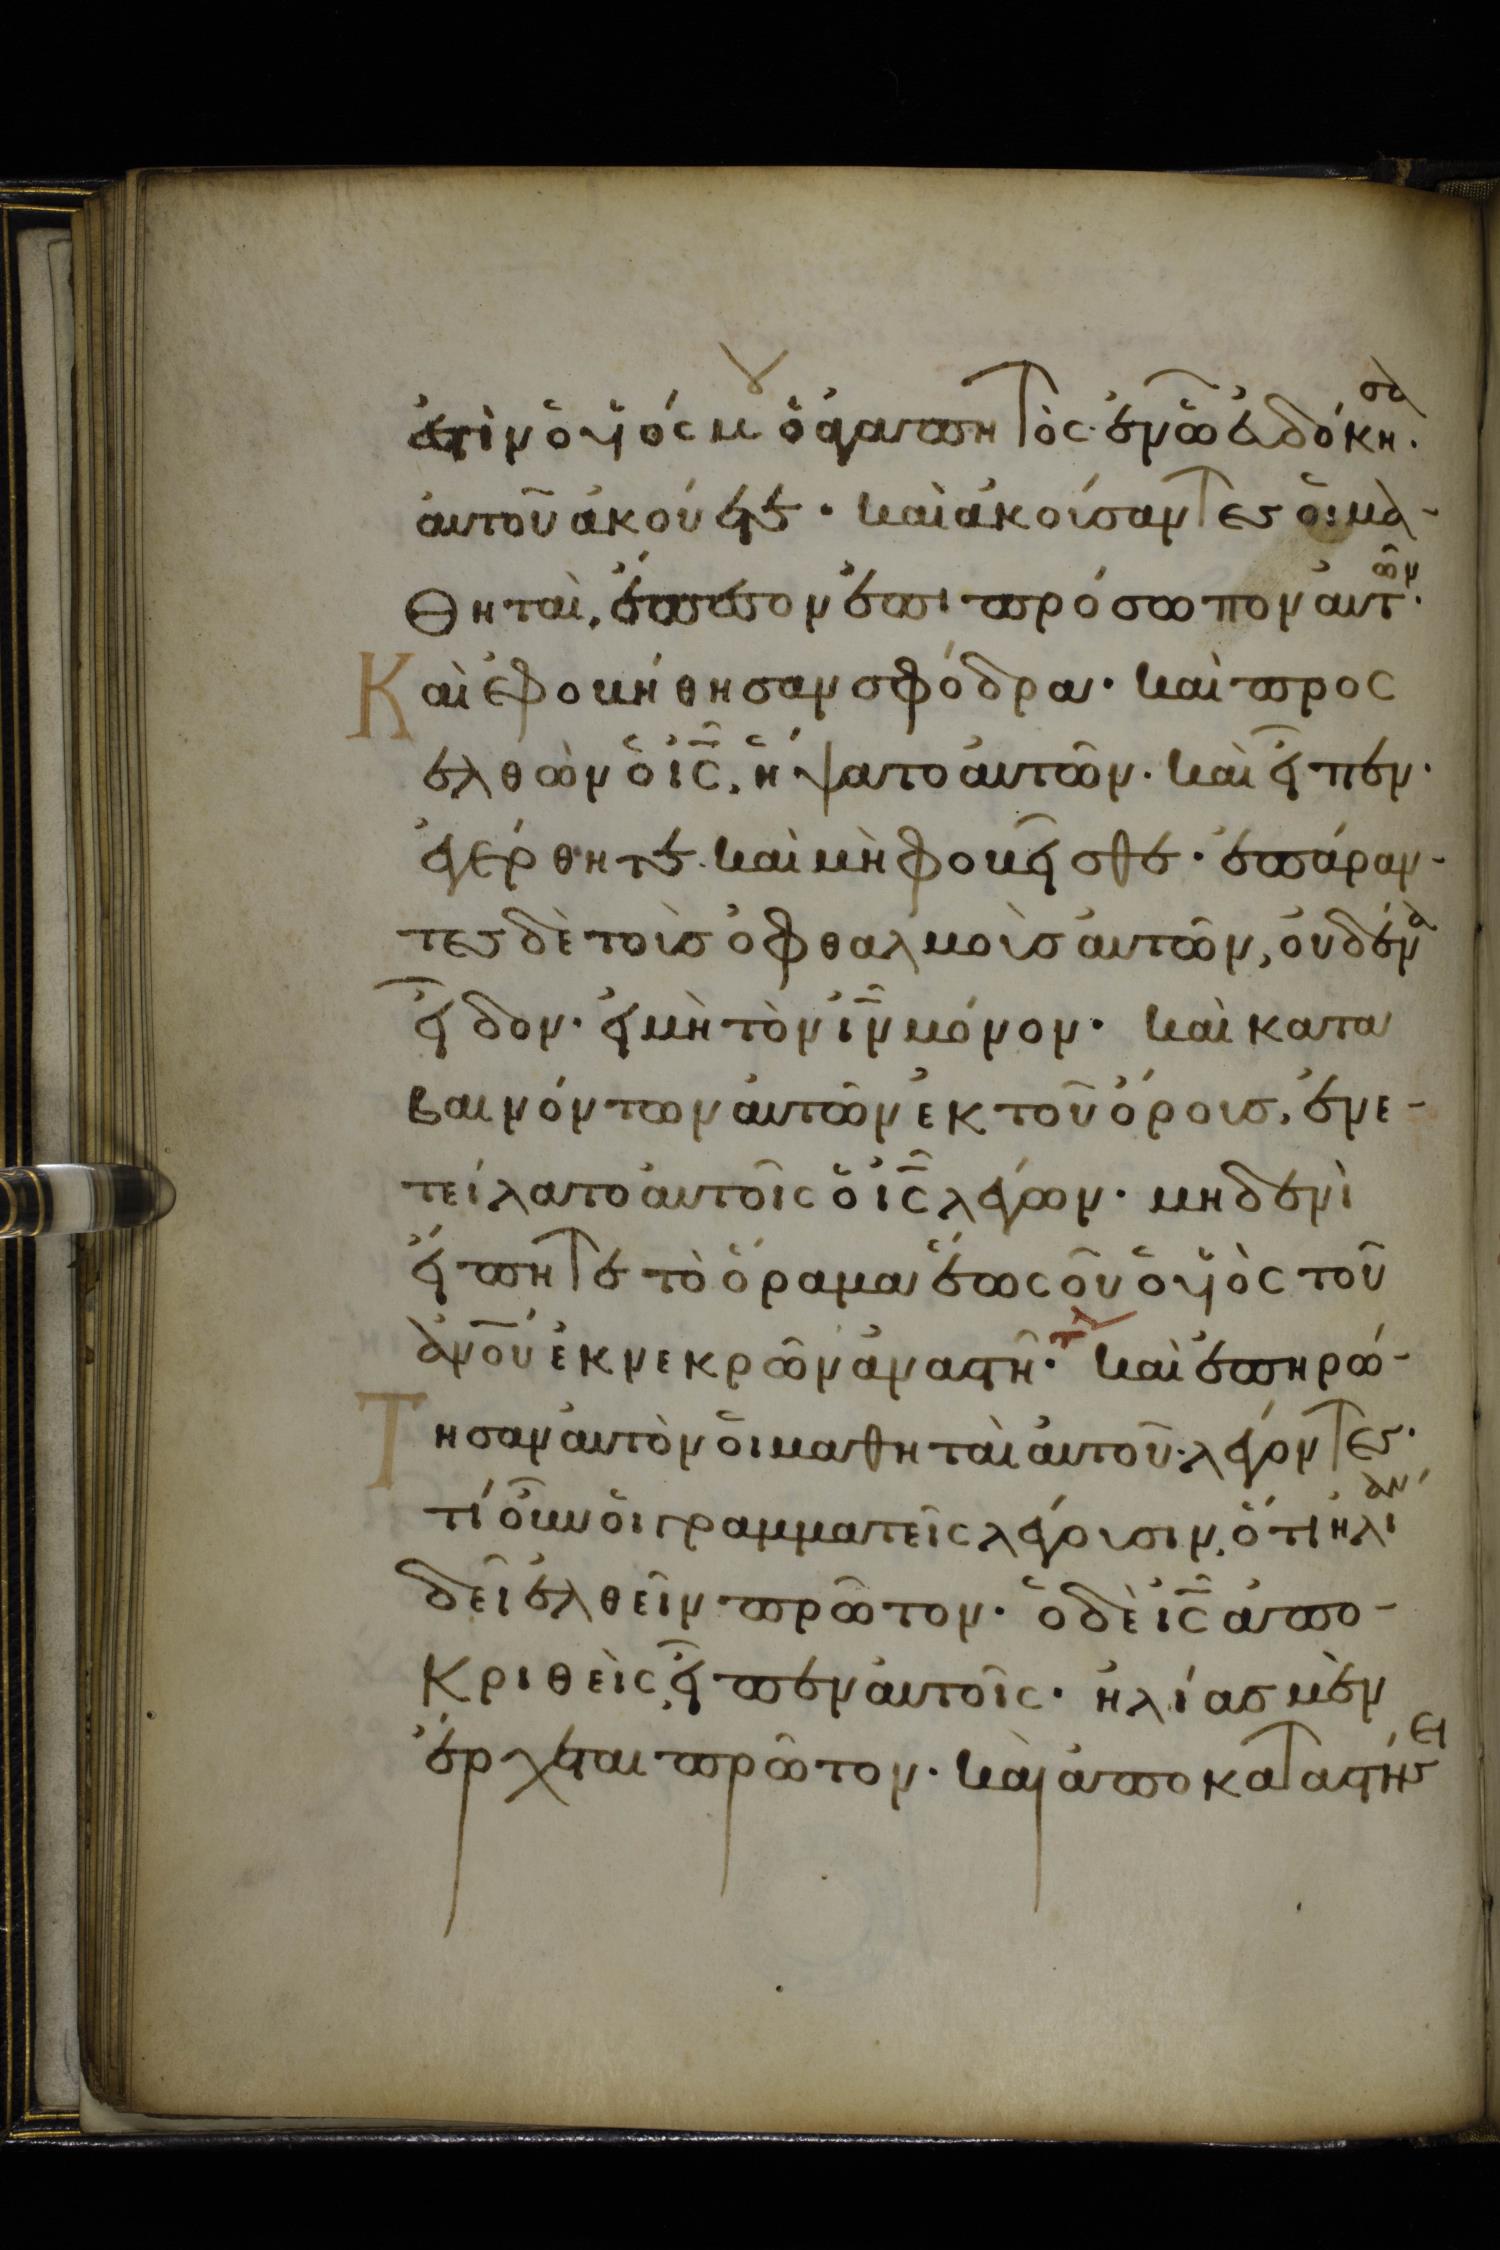 ἐστὶν ὁ υἱός μου ὁ ἀγαπητὸς· ἐν ὧ εὐδόκησα·
αὐτοῦ ἀκούετε· καὶ ἀκούσαντες οἱ μα-
θηταὶ, ἔπεσον ἐπι πρόσωπον αὐτῶν·
Καὶ ἐφοβήθησαν σφόδρα· καὶ προς
ελθὼν ὁ ις̅, ἥψατο αὐτῶν· καὶ εἶπεν·
ἐγέρθητε· καὶ μὴ φοβεῖσθε· ἐπάραν-
τες δὲ τοὺσ ὀφθαλμοὺσ αὐτῶν, οὐδένα
εἶδον· εἰ μὴ τὸν ιν̅ μόνον· καὶ κατα
βαινόντων αὐτῶν ἐκ τοῦ ὄρους, ἐνε-
τείλατο αὐτοῖς ὁ ις̅ λέγων· μηδενὶ
εἴπητε τὸ ὅραμα ἕως οὗ ὁ υἱὸς τοῦ
ανου̅ ἐκ νεκρῶν ἀναστῆ· καὶ ἐπηρώ-
Τησαν αὐτὸν οἱ μαθηταὶ αὐτοῦ· λέγοντες·
τί οὖν οἱ γραμματεῖς λέγουσιν, ὅτι ἠλίαν
δεῖ ἐλθεῖν πρῶτον· ὁ δὲ ις̅ ἀπο-
κριθεὶς, εἶπεν αὐτοῖς· ἠλίας μὲν
ἔρχεται πρῶτον· καὶ ἀποκαταστήσει